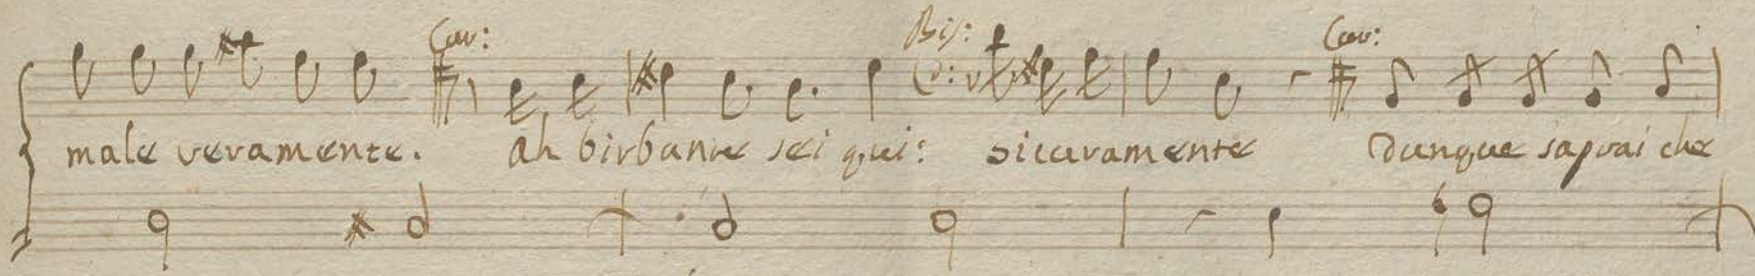 Cav: Bis: Cav:
male veramente. ah birbante sei qui: sicuramente Dunque saprai che